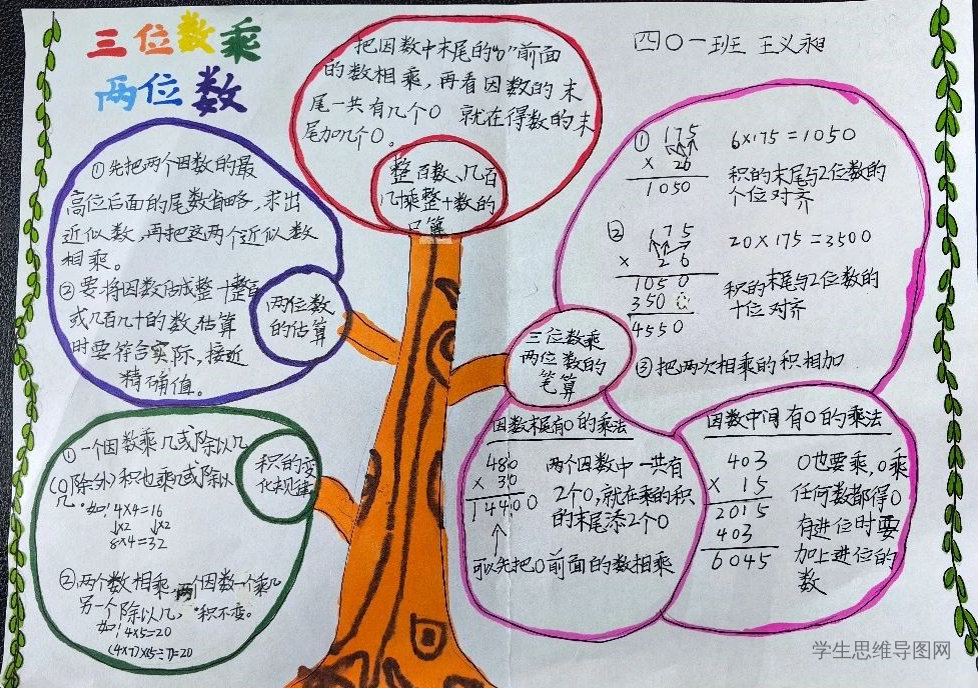 三位数乘
两位数
四〇一班 王义昶
把因数中末尾的“0”前面
的数相乘，再看因数的末
尾一共有几个0 就在得数的末
尾加几个0。
整百数、几百
几十乘整十数的
口算
①先把两个因数的最
高位后面的尾数省略，求出
近似数，再把这两个近似数
相乘。
②要将因数估成整十整百
或几百几十的数估算
时要符合实际，接近
精确值。
两位数
的估算
①一个因数乘几或除以几
(0除外)积也乘几或除以
几。
如：4×4=16
↓×2 ↓×2
8×4=32
②两个数相乘 两个因数一个乘几
另一个除以几，积不变。
如：4×5=20
(4×7)×(5÷7)=20
积的变
化规律
三位数乘
两位数的
笔算
① 175
× 26
1050
6×175=1050
积的末尾与2位数的
个位对齐
② 175
× 26
1050
3500
4550
20×175=3500
积的末尾与2位数的
十位对齐
③把两次相乘的积相加
因数末尾有0的乘法
480
× 30
14400
两个因数中一共有
2个0，就在乘的积
的末尾添2个0
可以先把0前面的数相乘
因数中间有0的乘法
403
× 15
2015
403
6045
0也要乘，0乘
任何数都得0
有进位时要
加上进位的
数
学生思维导图网